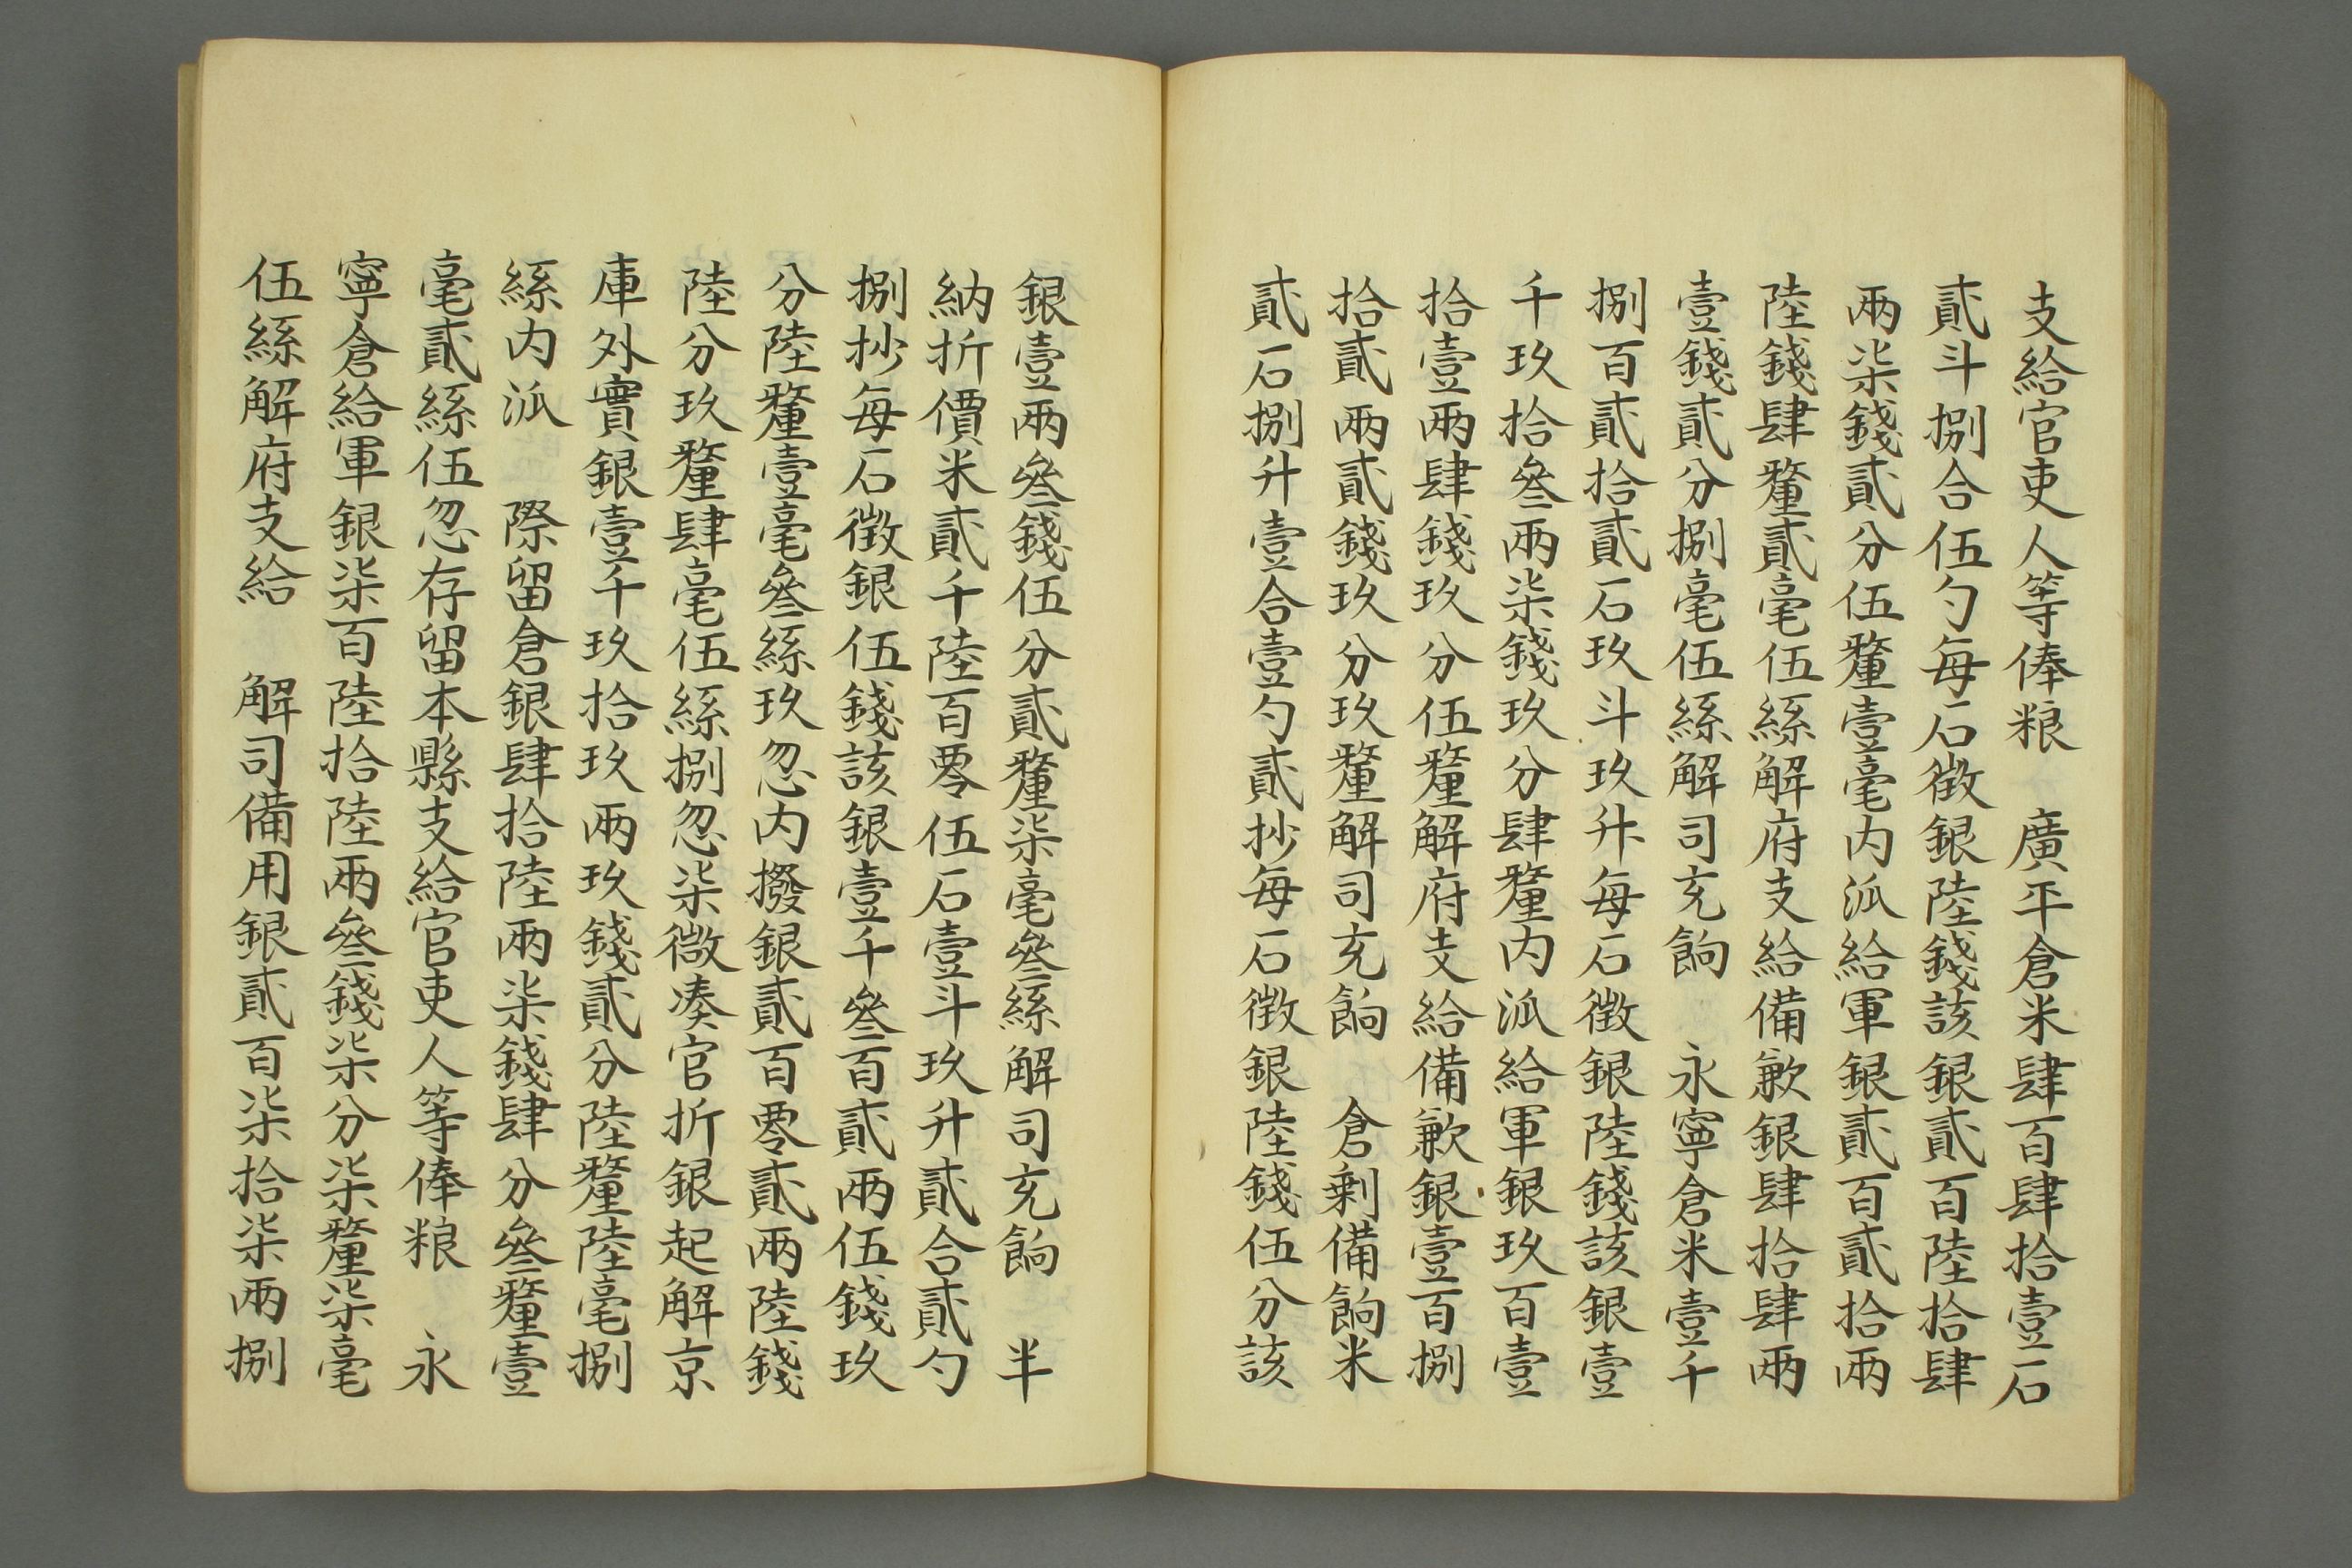 支給官吏人等俸粮　廣平倉米肆百肆拾壹石
貳斗捌合伍勺每石徵銀陸錢該銀貳百陸拾肆
兩柒錢貳分伍釐壹毫內派給軍銀貳百貳拾兩
陸錢肆釐貳毫伍絲解府支給備歉銀肆拾肆兩
壹錢貳分捌毫伍絲解司充餉　永寧倉米壹千
捌百貳拾貳石玖斗玖升每石徵銀陸錢該銀壹
千玖拾叄兩柒錢玖分肆釐內派給軍銀玖百壹
拾壹兩肆錢玖分伍釐解府支給備歉銀壹百捌
拾貳兩貳錢玖分玖釐解司充餉　倉剩備餉米
貳石捌升壹合壹勺貳抄每石徵銀陸錢伍分該
銀壹兩叄錢伍分貳釐柒毫叄絲解司充餉　半
納折價米貳千陸百零伍石壹斗玖升貳合貳勺
捌抄每石徵銀伍錢該銀壹千叄百貳兩伍錢玖
分陸釐壹毫叄絲玖忽內撥銀貳百零貳兩陸錢
陸分玖釐肆毫伍絲捌忽柒微凑官折銀起解京
庫外實銀壹千玖拾玖兩玖錢貳分陸釐陸毫捌
絲內派　際留倉銀肆拾陸兩柒錢肆分叄釐壹
毫貳絲伍忽存留本縣支給官吏人等俸粮　永
寧倉給軍銀柒百陸拾陸兩叄錢柒分柒釐柒毫
伍絲解府支給　解司備用銀貳百柒拾柒兩捌